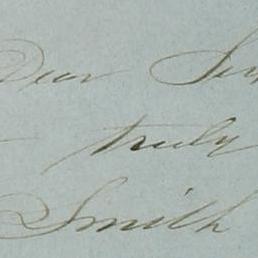 Dear
truly
Smith